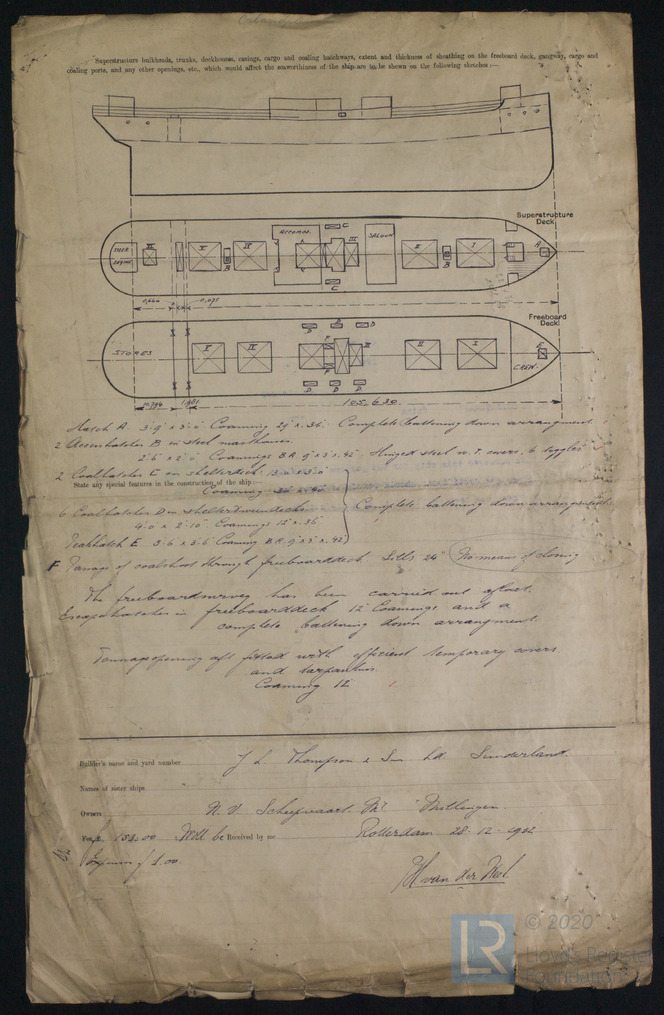 Superstructure bulkheads, trunks, deckhouses, casings, cargo and coaling hatchways, extent and thickness of sheathing on the freeboard deck, gangway, cargo and
coaling ports, and any other openings, etc., which would affect the seaworthiness of the ship are to be shown on the following sketches:—
Superstructure
Deck
STEER
ENGINE
VI
V
B
IV
ACCOMOD.
C
III
C
SALOON
II
B
I
A
Freeboard
Deck
STORES
V
IV
D D D
F
F
III
D D D
II
I
CREW
E
105.630
Hatch A 3'9" x 3'0" Coaming 24" x .36 Complete battening down arrangement.
2 Accesshatches B in steel masthouses.
2'6" x 2'0" Coamings B.A. 9" x 3" x .42" Hinged steel w.t. covers, 6 toggles
2 Coalhatches E on shelterdeck:
State any special features in the construction of the ship:—
Coaming 30" x .40"
6 Coalhatches D in shelter'tweendecks
4'0" x 2'10" Coamings 12" x .36"
Complete battening down arrangement
Peakhatch E 3'6" x 3'6" Coaming B.A. 9" x 3" x .42
F Passage of coalshoot through freeboarddeck. Sills 24" No means of closing
The freeboardsurvey has been carried out afloat.
Escapehatches in freeboarddeck 12" Coamings and a
complete battening down arrangment.
Tonnageopening aft fitted with efficient temporary covers
and tarpaulins.
Coaming 12"
Builder's name and yard number J L Thompson & Son Ltd Sunderland.
Names of sister ships
Owners N.V. Scheepvaart Mij Millingen.
Fee, £ 150.00 Will be Received by me Rotterdam 28-12-
1.00.
H van der
LR
© 2020
Lloyd's Register
Foundation